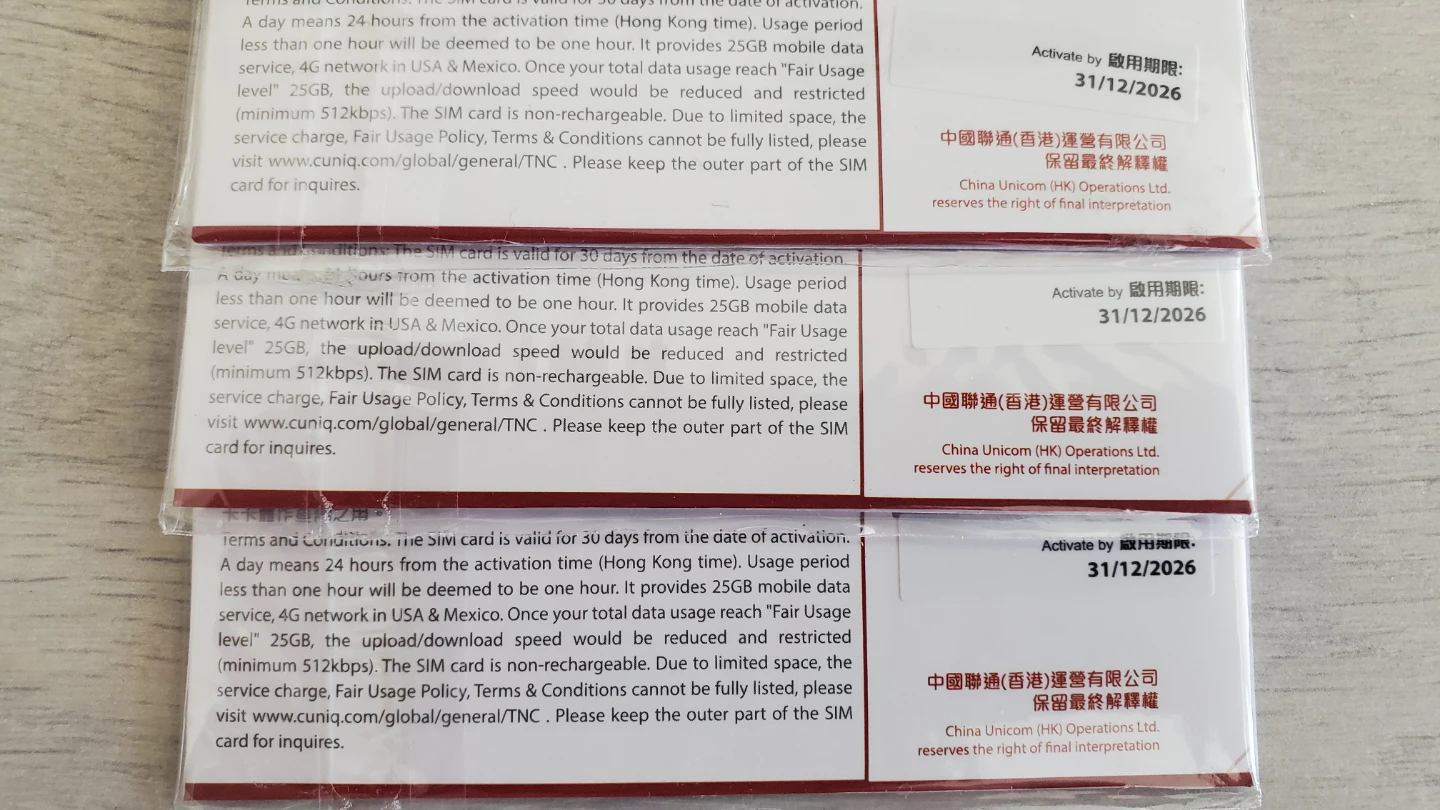 Terms and Conditions: The SIM card is valid for 30 days from the date of activation.
A day means 24 hours from the activation time (Hong Kong time). Usage period
less than one hour will be deemed to be one hour. It provides 25GB mobile data
service, 4G network in USA & Mexico. Once your total data usage reach "Fair Usage
level" 25GB, the upload/download speed would be reduced and restricted
(minimum 512kbps). The SIM card is non-rechargeable. Due to limited space, the
service charge, Fair Usage Policy, Terms & Conditions cannot be fully listed, please
visit www.cuniq.com/global/general/TNC . Please keep the outer part of the SIM
card for inquires.
Activate by 啟用期限:
31/12/2026
中國聯通(香港)運營有限公司
保留最終解釋權
China Unicom (HK) Operations Ltd.
reserves the right of final interpretation
Terms and Conditions: The SIM card is valid for 30 days from the date of activation.
A day means 24 hours from the activation time (Hong Kong time). Usage period
less than one hour will be deemed to be one hour. It provides 25GB mobile data
service, 4G network in USA & Mexico. Once your total data usage reach "Fair Usage
level" 25GB, the upload/download speed would be reduced and restricted
(minimum 512kbps). The SIM card is non-rechargeable. Due to limited space, the
service charge, Fair Usage Policy, Terms & Conditions cannot be fully listed, please
visit www.cuniq.com/global/general/TNC . Please keep the outer part of the SIM
card for inquires.
Activate by 啟用期限:
31/12/2026
中國聯通(香港)運營有限公司
保留最終解釋權
China Unicom (HK) Operations Ltd.
reserves the right of final interpretation
Terms and Conditions: The SIM card is valid for 30 days from the date of activation.
A day means 24 hours from the activation time (Hong Kong time). Usage period
less than one hour will be deemed to be one hour. It provides 25GB mobile data
service, 4G network in USA & Mexico. Once your total data usage reach "Fair Usage
level" 25GB, the upload/download speed would be reduced and restricted
(minimum 512kbps). The SIM card is non-rechargeable. Due to limited space, the
service charge, Fair Usage Policy, Terms & Conditions cannot be fully listed, please
visit www.cuniq.com/global/general/TNC . Please keep the outer part of the SIM
card for inquires.
Activate by 啟用期限:
31/12/2026
中國聯通(香港)運營有限公司
保留最終解釋權
China Unicom (HK) Operations Ltd.
reserves the right of final interpretation